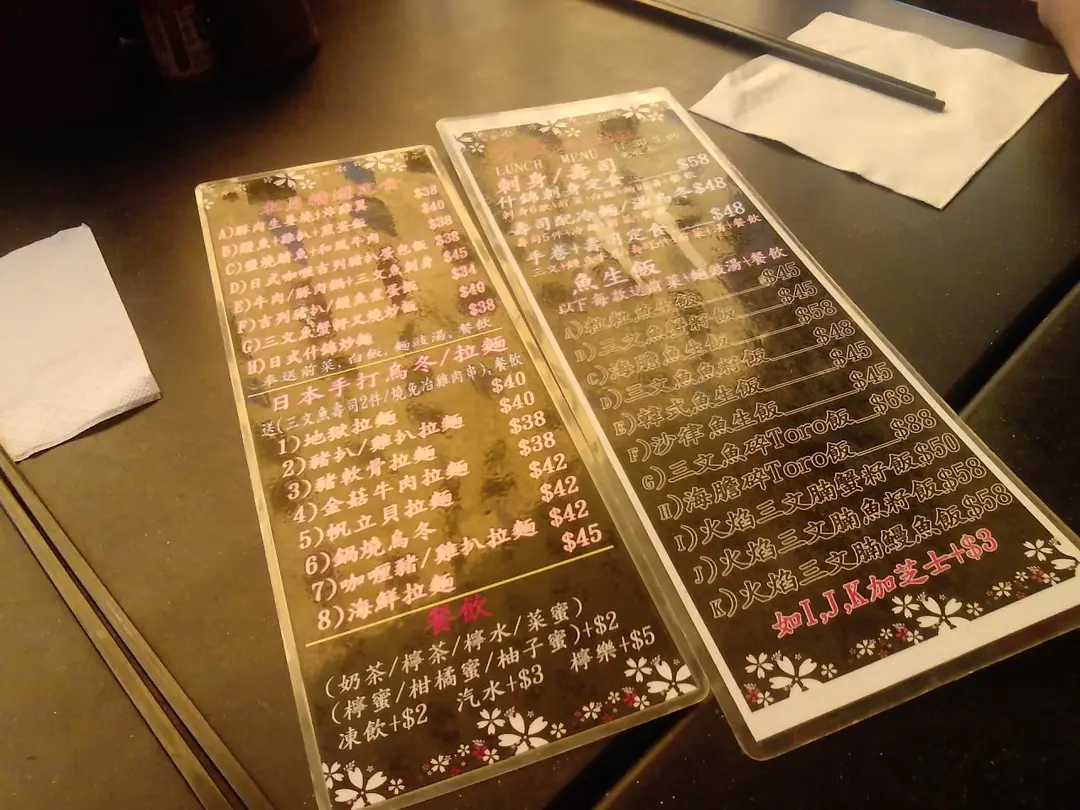 $38
A)豚肉生姜燒+
$40
B)鰻魚+雞扒+煎蛋飯
$38
C)鹽燒鯖魚
$38
D)日式咖喱吉列豬扒蛋包飯
$45
E)牛肉/豚肉鍋+三文魚刺身
$34
F)吉列豬扒/鰻魚煮蛋飯
$40
G)三文魚蟹籽叉燒炒飯
$38
H)日式什錦炒麵
奉送前菜,白飯,麵豉湯,餐飲
日本手打烏冬/拉麵
送(三文魚壽司2件/燒免冶雞肉串),餐飲
1)地獄拉麵 $40
2)豬扒/雞扒拉麵 $40
3)豬軟骨拉麵 $38
4)金菇牛肉拉麵 $38
5)帆立貝拉麵 $42
6)鍋燒烏冬 $42
7)咖喱豬/雞扒拉麵 $42
8)海鮮拉麵 $45
餐飲
(奶茶/檸茶/檸水/菜蜜)
(檸蜜/柑橘蜜/柚子蜜)+$2
凍飲+$2 汽水+$3 檸樂+$5
LUNCH MENU
刺身/壽司
什錦刺身定食 $58
壽司配冷麵/ $48
手卷+壽司定食 $48
魚生飯
A)粒粒魚生飯 $45
B)三文魚蟹籽飯 $45
C)海膽魚生飯 $58
D)三文魚魚籽飯 $48
E)韓式魚生飯 $45
F)沙律魚生飯 $45
G)三文魚碎Toro飯 $68
H)海膽碎Toro飯 $88
I)火焰三文腩蟹籽飯$50
J)火焰三文腩魚籽飯$58
K)火焰三文腩鰻魚飯$58
如I,J,K加芝士+$3